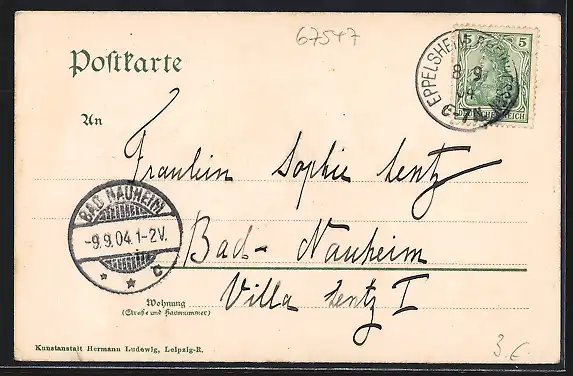 67547
Postkarte
5 5
EPPELSHEIM
8 9
04
6-7N
DEUTSCHES REICH
An
Fräulein Sophie Lentz
BAD NAUHEIM
-9.9.04.1-2V.
* * c
Bad-Nauheim
Villa Lentz I
Wohnung
(Straße und Hausnummer)
Kunstanstalt Hermann Ludewig, Leipzig-R.
3.€